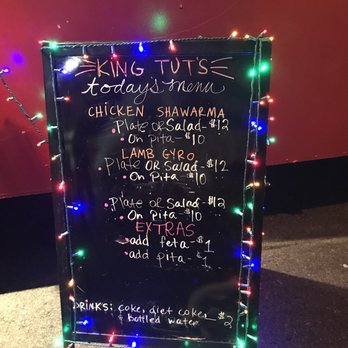 KING TUT'S
today's menu
CHICKEN SHAWARMA
• Plate OR Salad - $12
• On Pita - $10
LAMB GYRO
• Plate OR Salad - $12
• On Pita - $10
• Plate OR Salad - $12
• On Pita - $10
EXTRAS
• add feta - $1
• add pita - $1
DRINKS: coke, diet coke,
& bottled water $2